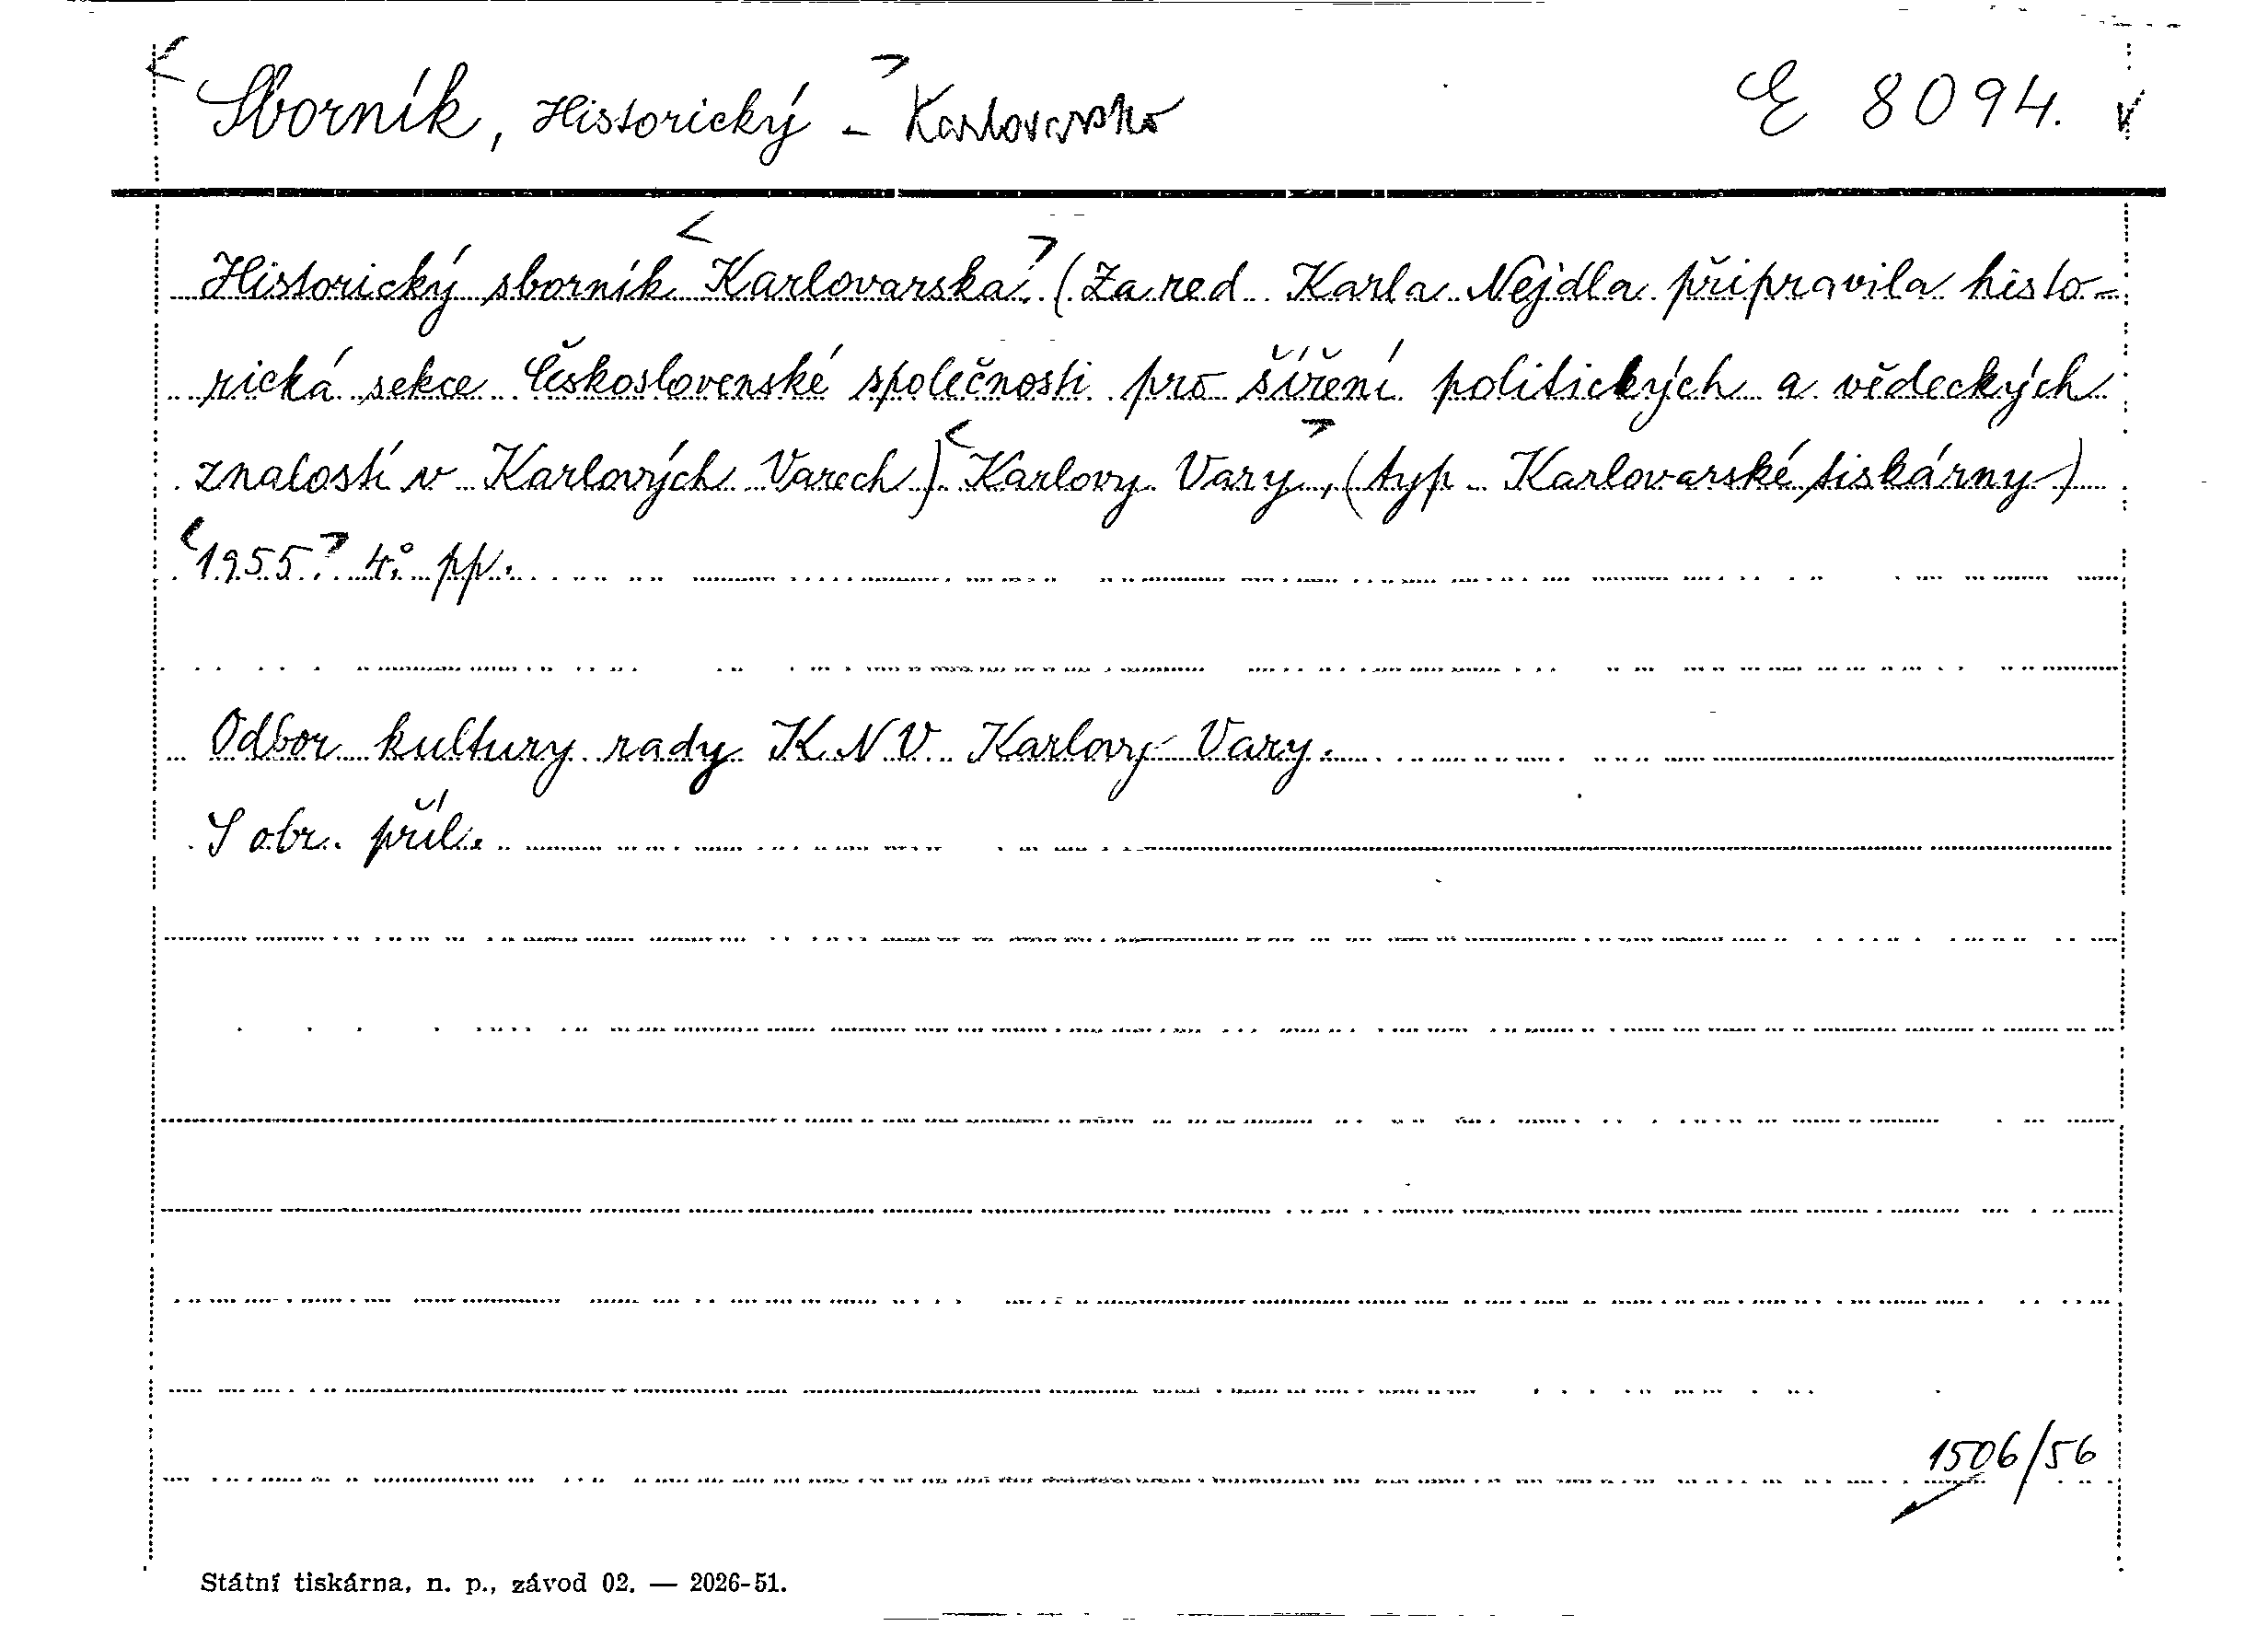 Sborník, Historický - Karlovarsko E 8094.
Historický sborník Karlovarska. (Za red. Karla Nejdla připravila histo-
rická sekce Československé společnosti pro šíření politických a vědeckých
znalostí v Karlových Varech) Karlovy Vary, (typ. Karlovarské tiskárny)
1955. 4° pp.
Odbor kultury rady KNV Karlovy Vary.
S obr. příl.
1506/56
Státní tiskárna, n. p., závod 02. — 2026-51.